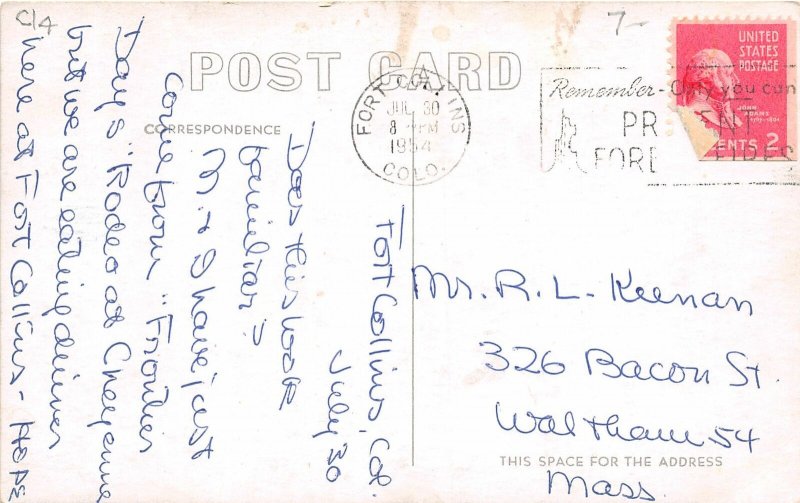 C/4
7-
POST CARD
CORRESPONDENCE
FORT COLLINS
JUL 30
8 PM
1954
COLO.
Remember - Only you can
PR ENT
FORE FIRES
UNITED
STATES
POSTAGE
JOHN
ADAMS
1797-1801
ENTS 2
Fort Collins, Col.
July 30
Does this look
familiar?
M. & I have just
come from "Frontier
Days" Rodeo at Cheyenne
but we are eating dinner
here at Fort Collins - Hope
Mr. R. L. Keenan
326 Bacon St.
Waltham 54
THIS SPACE FOR THE ADDRESS
Mass.